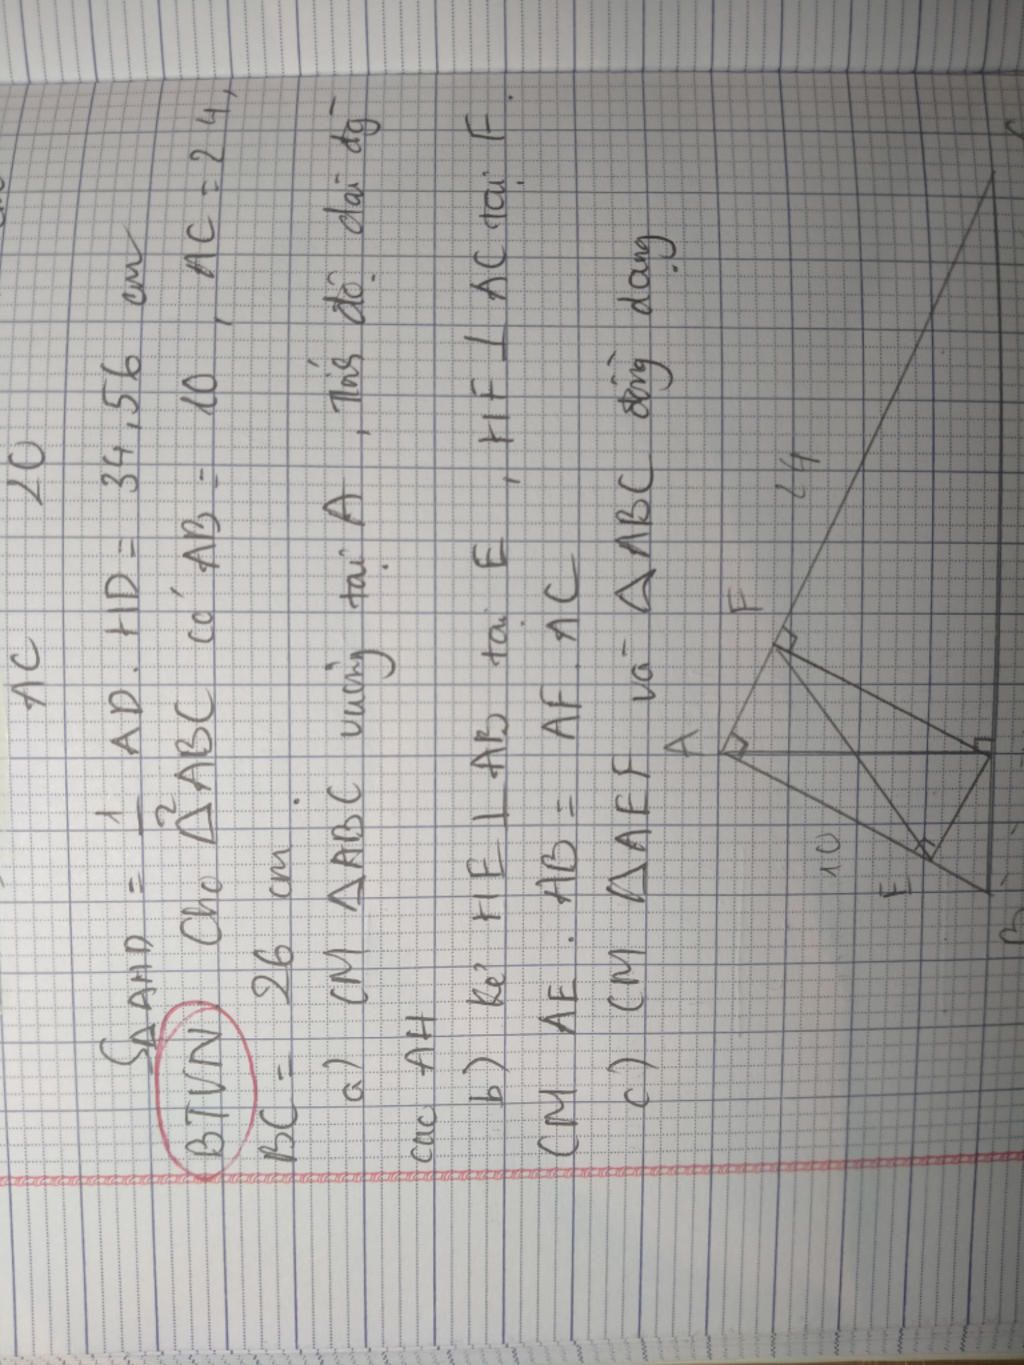 AC 20
S∆AHD = 1 AD . HD = 34,56 cm
2
BTVN Cho ∆ABC có AB = 10 , AC = 24,
BC = 26 cm .
a) CM ∆ABC vuông tại A , Tính độ dài đg
cao AH
b) Kẻ HE ⊥ AB tại E , HF ⊥ AC tại F .
CM AE . AB = AF . AC
c) CM ∆AEF và ∆ABC đồng dạng
A
F
10
24
E
B